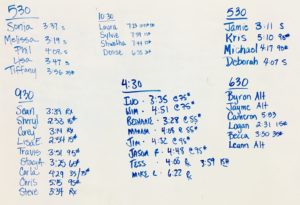 530
Sonia 3:37 S
Melissa 3:19
Phil 4:08 S
Lisa 3:47 S
Tiffany 3:56
10:30
Laura 7:23
Sylvie 7:54
Shwetha 7:44
Denise 6:55
530
Jamie 3:11 S
Kris 5:10 95#
Michael 4:17 95#
Deborah 4:07 S
930
Sean 3:39 Rx
Sherryl 2:53
Corey 3:14 Rx
Lisa E 2:54
Travis 3:51 95#
Stacy A 3:25 65#
Carla 4:29 35/
Chris 5:15 95#
Steve 3:34 Rx
4:30
Ivo - 3:35 C 75#
Wim - 4:51 C 75#
Bethanie - 3:28 C 55#
Mariam - 4:08 S 55
Jim - 4:32 C 75#
Jason R - 4:48 C 75#
Tess - 4:06 S 3:59 15#
Mike R - 6:22 R
630
Byron Alt
Jayme Alt
Cameron 5:03
Logan 2:31 15#
Becca 3:30 35#
Leann Alt